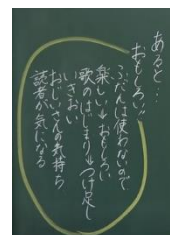 あると…
おもしろい!!
ふだんは使わないので
楽しい→おもしろい
歌のはじまり→つけ足し
いきおい
おじいさんの気持ち
読者が気になる